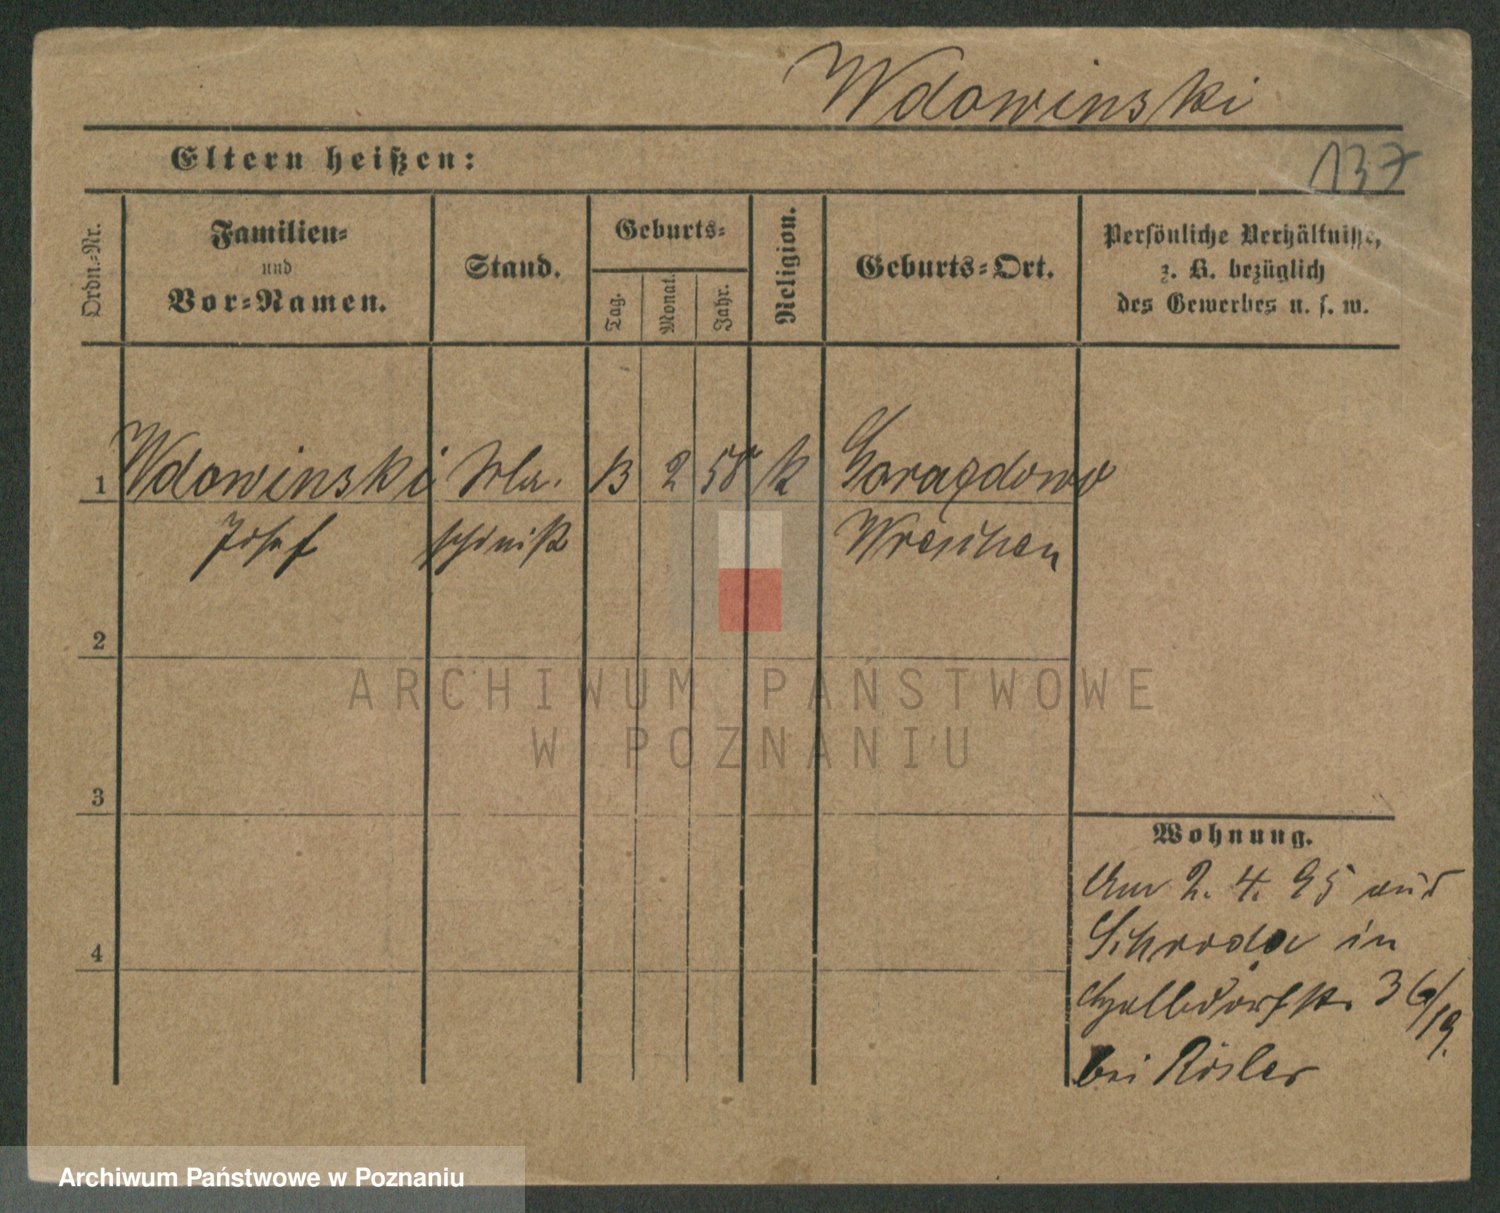 Wdowinski
Eltern heißen:
137
Ordn.-Nr.
Familien-
und
Vor-Namen.
Stand.
Geburts-
Tag.
Monat.
Jahr.
Religion.
Geburts-Ort.
Persönliche Verhältnisse,
z. B. bezüglich
des Gewerbes u. s. w.
1 Wdowinski 13 2 58 k Gorazdowo
Josef schinist Wreschen
2
3
4
Wohnung.
Am 2. 4. 95 aus
Schroda in
36/19.
bei Rösler
ARCHIWUM PAŃSTWOWE
W POZNANIU
Archiwum Państwowe w Poznaniu